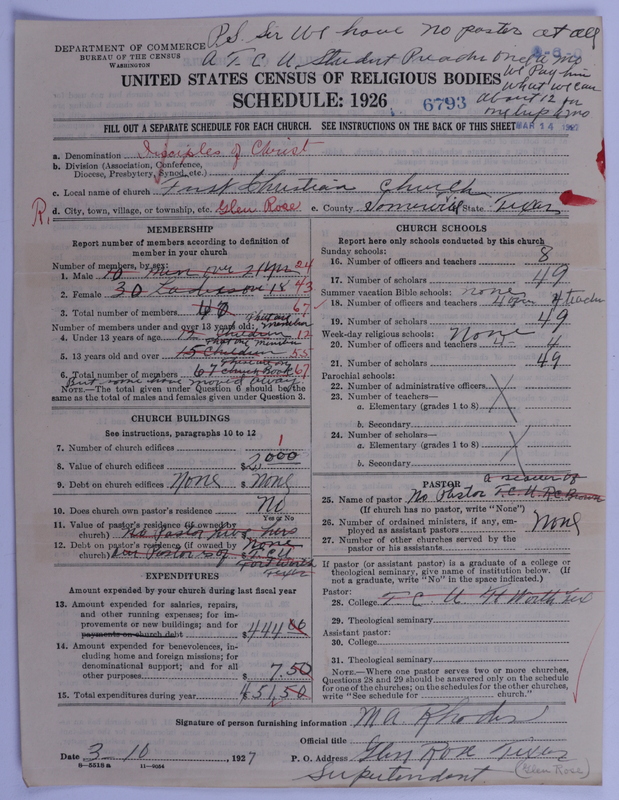 P.S. Sir We have no pastor at all
A T.C.U. Student Preach one a mo
We Pay him
what we can
about 12 for
one trip a mo
DEPARTMENT OF COMMERCE
BUREAU OF THE CENSUS
WASHINGTON
UNITED STATES CENSUS OF RELIGIOUS BODIES
SCHEDULE: 1926
6793
MAR 14 1927
FILL OUT A SEPARATE SCHEDULE FOR EACH CHURCH. SEE INSTRUCTIONS ON THE BACK OF THIS SHEET
a. Denomination Disciples of Christ
b. Division (Association, Conference,
Diocese, Presbytery, Synod, etc.)
c. Local name of church First Christian Church
R. d. City, town, village, or township, etc. Glen Rose e. County Somervell State Texas
MEMBERSHIP
Report number of members according to definition of
member in your church
Number of members, by sex:
1. Male 10 Men over 21 yrs 24
2. Female 30 Ladies over 18 43
3. Total number of members 40 67
Number of members under and over 13 years old: that are members
4. Under 13 years of age 12 Children 12
that are members
5. 13 years old and over 15 Children 55
6. Total number of members 67 Church Book 67
But some have moved away
NOTE.—The total given under Question 6 should be the
same as the total of males and females given under Question 3.
CHURCH BUILDINGS
See instructions, paragraphs 10 to 12
7. Number of church edifices 1
8. Value of church edifices $ 2,000
9. Debt on church edifices None $ None
10. Does church own pastor's residence No
Yes or No
11. Value of pastor's residence (if owned by
church) No Pastor lives hers
12. Debt on pastor's residence (if owned by None
church) Our Pastor is of $ T.C.U
Fort Worth
Texas
EXPENDITURES
Amount expended by your church during last fiscal year
13. Amount expended for salaries, repairs,
and other running expenses; for im-
provements or new buildings; and for
payments on church debt $ 444 00
14. Amount expended for benevolences, in-
cluding home and foreign missions; for
denominational support; and for all
other purposes $ 7.50
15. Total expenditures during year $ 451.50
CHURCH SCHOOLS
Report here only schools conducted by this church
Sunday schools:
16. Number of officers and teachers 8
17. Number of scholars 49
Summer vacation Bible schools: none
18. Number of officers and teachers 4 4 teacher
19. Number of scholars 49
Week-day religious schools: None
20. Number of officers and teachers
21. Number of scholars 49
Parochial schools:
22. Number of administrative officers
23. Number of teachers—
a. Elementary (grades 1 to 8)
b. Secondary
24. Number of scholars—
a. Elementary (grades 1 to 8)
b. Secondary
PASTOR
25. Name of pastor No Pastor T.C.U. R.C. Brown
(If church has no pastor, write "None")
26. Number of ordained ministers, if any, em-
ployed as assistant pastors None
27. Number of other churches served by the
pastor or his assistants
If pastor (or assistant pastor) is a graduate of a college or
theological seminary, give name of institution below. (If
not a graduate, write "No" in the space indicated.)
Pastor:
28. College T C U Ft Worth Tex
29. Theological seminary
Assistant pastor:
30. College
31. Theological seminary
NOTE.—Where one pastor serves two or more churches,
Questions 28 and 29 should be answered only on the schedule
for one of the churches; on the schedules for the other churches,
write "See schedule for church."
Signature of person furnishing information M A Rhodes
Official title
Date 3 10, 1927 P. O. Address Glen Rose Texas
6—5518a 11—9054
Supertendent (Glen Rose)